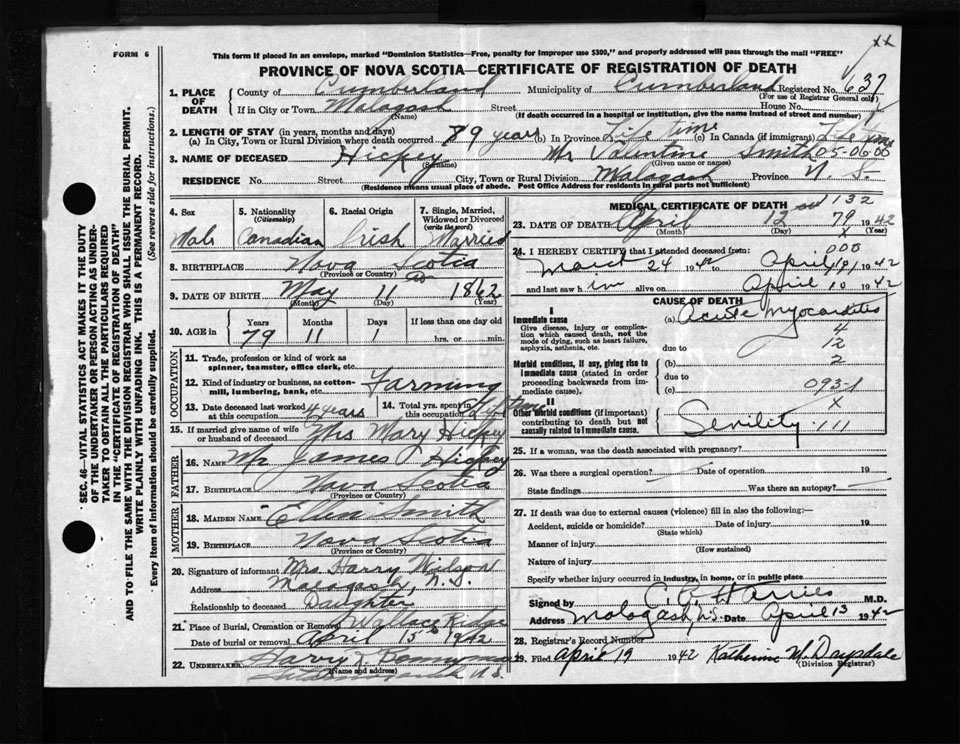 FORM 6
This form if placed in an envelope, marked "Dominion Statistics—Free, penalty for improper use $300," and properly addressed will pass through the mail "FREE"
xx
PROVINCE OF NOVA SCOTIA—CERTIFICATE OF REGISTRATION OF DEATH
1. PLACE OF DEATH
County of Cumberland Municipality of Cumberland Registered No. 637
(For use of Registrar General only)
If in City or Town Malagash Street House No.
(Name) (If death occurred in a hospital or institution, give the name instead of street and number)
2. LENGTH OF STAY (in years, months and days)
(a) In City, Town or Rural Division where death occurred 89 years (b) In Province Life time (c) In Canada (if immigrant) Life time
3. NAME OF DECEASED Hickey Mr Valentine Smith 05-06-00
(Surname) (Given name or names)
RESIDENCE No. Street City, Town or Rural Division Malagash Province N. S.
(Residence means usual place of abode. Post Office Address for residents in rural parts not sufficient)
4. Sex
Male
5. Nationality
(Citizenship)
Canadian
6. Racial Origin
Irish
7. Single, Married, Widowed or Divorced
(write the word)
Married
8. BIRTHPLACE Nova Scotia
(Province or Country)
9. DATE OF BIRTH May 11 1862
(Month) (Day) (Year)
10. AGE in Years Months Days If less than one day old
79 11 1 hrs. or min.
OCCUPATION
11. Trade, profession or kind of work as spinner, teamster, office clerk, etc.
12. Kind of industry or business, as cotton-mill, lumbering, bank, etc. Farming
13. Date deceased last worked at this occupation 4 years
14. Total yrs. spent in this occupation
15. If married give name of wife or husband of deceased Mrs Mary Hickey
FATHER
16. NAME Mr James Hickey
17. BIRTHPLACE Nova Scotia
(Province or Country)
MOTHER
18. MAIDEN NAME Ellen Smith
19. BIRTHPLACE Nova Scotia
(Province or Country)
20. Signature of informant Mrs. Harry Wilson
Address Malagash, N. S.
Relationship to deceased Daughter
21. Place of Burial, Cremation or Removal Wallace Ridge
Date of burial or removal April 15th 1942
22. UNDERTAKER Harry
(Name and address)
N. S.
MEDICAL CERTIFICATE OF DEATH 1132
23. DATE OF DEATH April 12 79 1942
(Month) (Day) x (Year)
24. I HEREBY CERTIFY that I attended deceased from: 000
March 24 1942 to April 1942
and last saw him alive on April 10 1942
CAUSE OF DEATH
I
Immediate cause (a) Acute Myocarditis
Give disease, injury or complication which caused death, not the mode of dying, such as heart failure, asphyxia, asthenia, etc.
4
due to 12
Morbid conditions, if any, giving rise to immediate cause (stated in order proceeding backwards from immediate cause).
(b) 2
due to
(c) 093-1
II
x
Other morbid conditions (if important) contributing to death but not causally related to immediate cause.
Senility 111
25. If a woman, was the death associated with pregnancy?
26. Was there a surgical operation? Date of operation 19
State findings Was there an autopsy?
27. If death was due to external causes (violence) fill in also the following:—
Accident, suicide or homicide? Date of injury 19
(State which)
Manner of injury
(How sustained)
Nature of injury
Specify whether injury occurred in industry, in home, or in public place
Signed by C. A. Harries M.D.
Address Malagash, N.S. Date April 13 1942
28. Registrar's Record Number
29. Filed April 19 1942 Katherine M. Drysdale
(Division Registrar)
SEC. 46—VITAL STATISTICS ACT MAKES IT THE DUTY
OF THE UNDERTAKER OR PERSON ACTING AS UNDER-
TAKER TO OBTAIN ALL THE PARTICULARS REQUIRED
IN THE "CERTIFICATE OF REGISTRATION OF DEATH"
AND TO FILE THE SAME WITH THE DIVISION REGISTRAR WHO SHALL ISSUE THE BURIAL PERMIT.
WRITE PLAINLY WITH UNFADING INK. THIS IS A PERMANENT RECORD.
Every item of information should be carefully supplied. (See reverse side for instructions.)